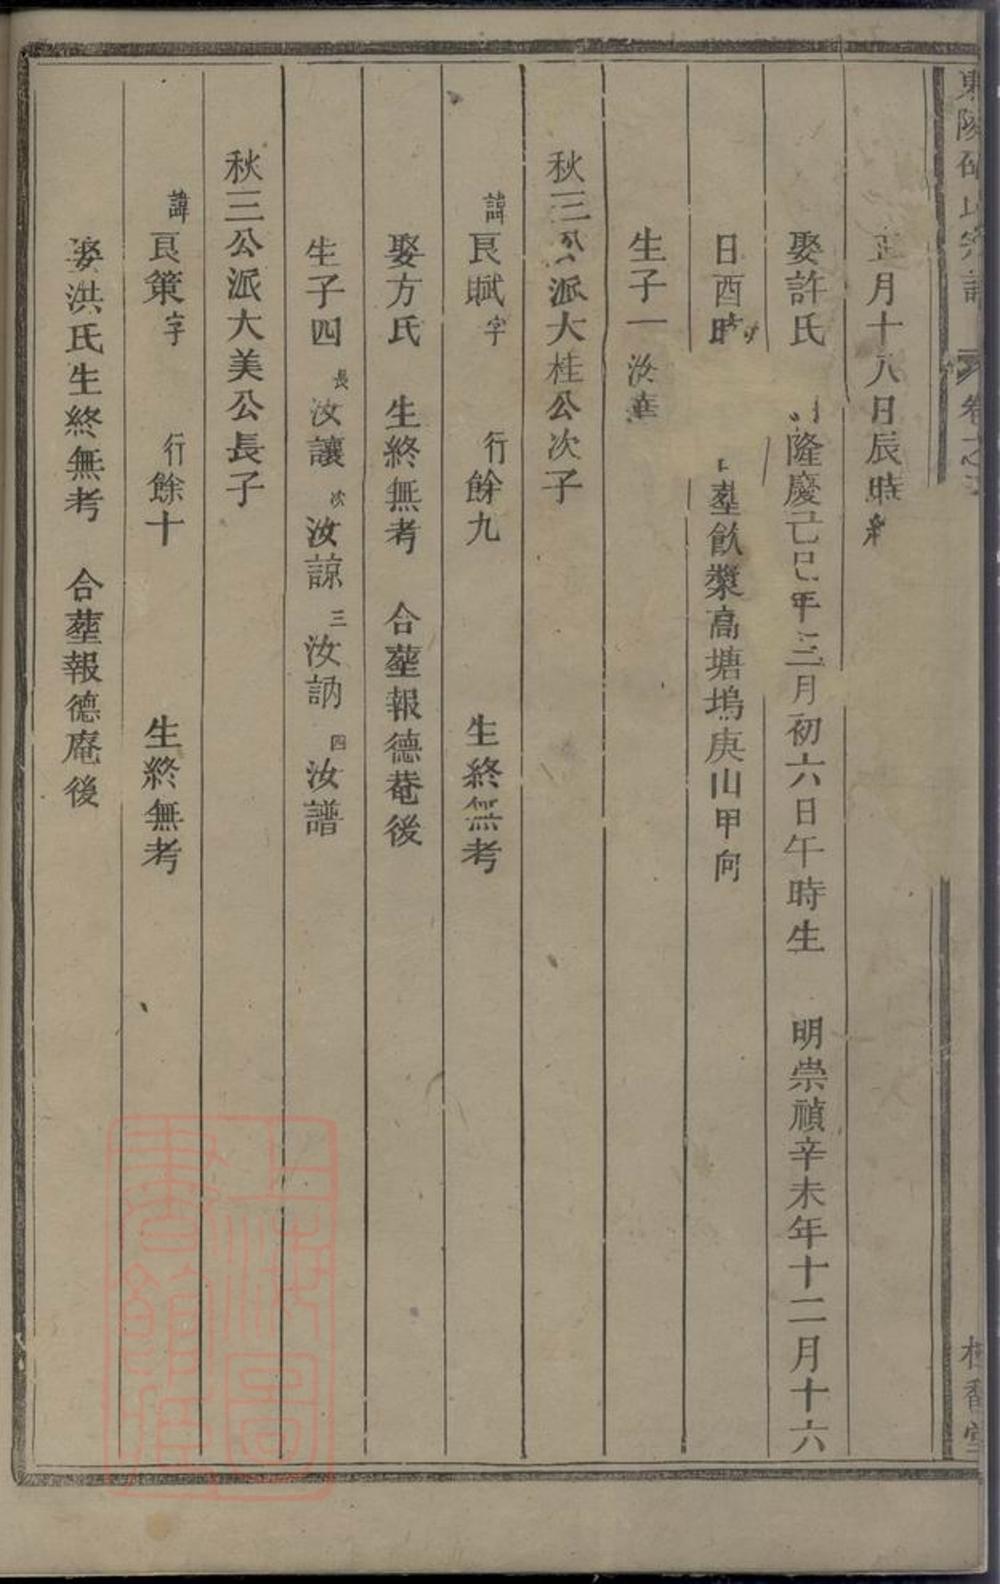 正月十八日辰時終
娶許氏 明隆慶己巳年三月初六日午時生 明崇禎辛未年十二月十六
日酉時 葬飲槳高塘塢庚山甲向
生子一汝華
秋三公派大桂公次子
諱良賦字 行餘九 生終無考
娶方氏 生終無考 合塟報德菴後
生子四長汝讓次汝諒三汝訥四汝譜
秋三公派大美公長子
諱良策字 行餘十 生終無考
娶洪氏生終無考 合塟報德庵後
上海圖書館藏